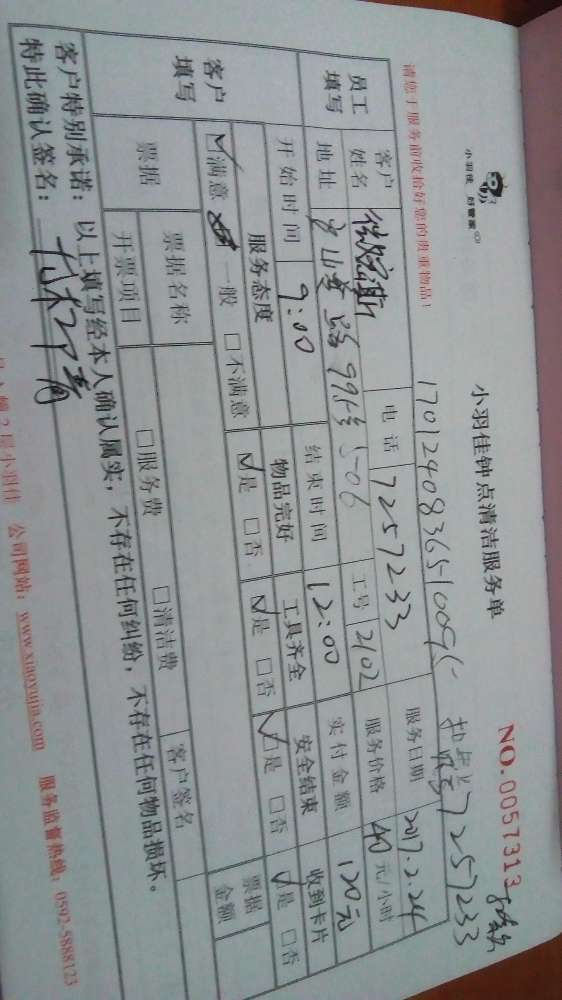 小羽佳 好管家
小羽佳钟点清洁服务单
NO.0057313
1701240836510095
7257233
请您于服务前收拾好您的贵重物品！
员工填写 客户姓名 电话 7257233 服务日期 2017.2.24
地址 路99号506 工号 2102 服务价格 40元/小时
开始时间 9:00 结束时间 12:00 实付金额 120元
客户填写 服务态度 物品完好 工具齐全 安全结束 收到卡片
☑满意 一般 □不满意 ☑是 □否 ☑是 □否 ☑是 □否 ☑是 □否
票据 票据名称 □服务费 □清洁费 票据金额
开票项目 客户签名
客户特别承诺：以上填写经本人确认属实，不存在任何纠纷，不存在任何物品损坏。
特此确认签名：
2层小羽佳 公司网站：www.xiaoyujia.com 服务监督热线：0592-5888123